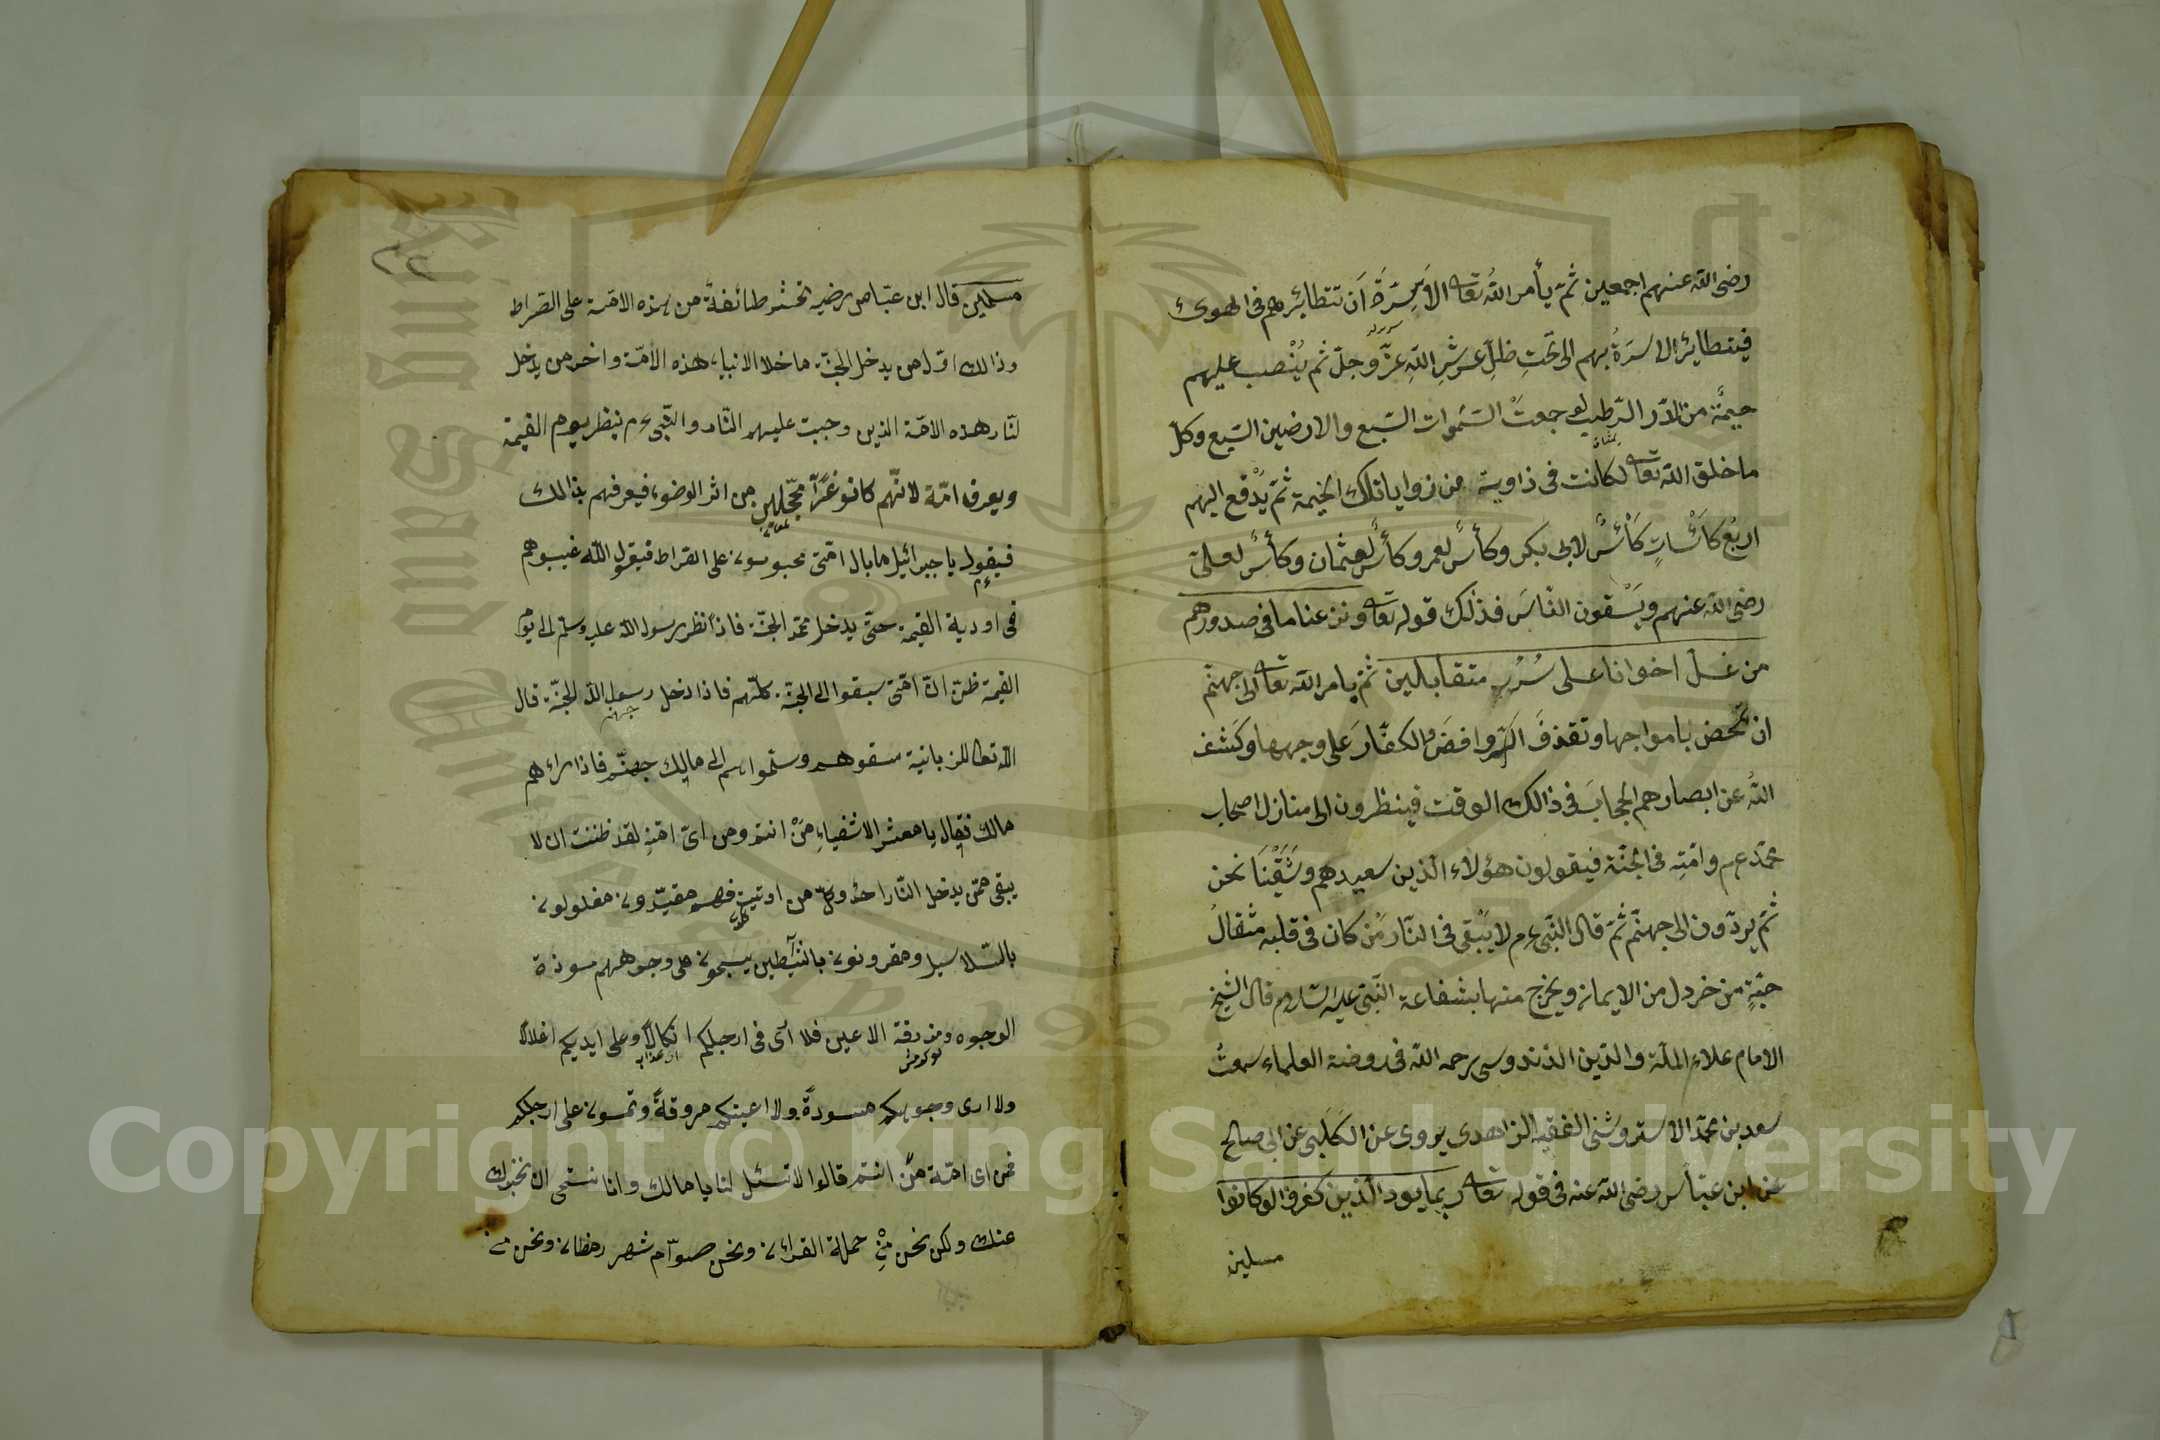 رضى الله عنهم اجمعين ثم يأمر الله تعا الاَسِرَّةَ اَن تتطائر بهم فى الهوىٰ
فيتطاير الاسرّةُ بهم الى تحتِ ظلِّ عرشِ اللهِ عزّ وجلّ ثم يُنْصب عليهم
خيمَّة من الدّر الرّطب لو جمعتْ السّمٰوات السّبع والارضين السّبع وكلّ
ما خلق الله تعا لكانت فى زاوية من زوايا تلك الخيمة ثمّ يُدْفع اليهم
اربعُ كاَسَاتٍ كَأْسٌ لابى بكر وكأسٌ لعمر وكأسٌ لعثمان وكأسٌ لعلىّ
رضى الله عنهم ويَسْقون النّاسَ فذلك قوله تعا ونزعنا ما فى صدورهم
من غلّ اخوانا على سُرُرٍ متقابلين ثمّ يامر الله تعا الى جهنّم
ان تمخض بامواجها وتقذفَ الرّوافضَ والكفّارَ على وجهها وكشف
اللهُ عن ابصارهم الحجابَ فى ذالك الوقت فينظرون الى منازل اصحاب
محمّد عم وامّتِه فى الجنّة فيقولون هؤلاء الّذين سعيدهم وشَقَيْنَا نحن
ثمّ يردّون الى جهنّم ثمّ قال النّبى ءم لا يَبْقى فى النّار مَن كان فى قلبه مثقالُ
حبّةٍ من خردل من الايمان ويخرج منها بشفاعة النّبىّ عليه السّلام قال الشيخ
الامام علاء الملّة والدّين الزندوسى رحمه الله فى روضة العلماء سمعتُ
سعد بن محمّد الاستروشنى الفقيه الزاهدى يروى عن الكَلَبى عن ابى صالح
عن ابن عبّاس رضى الله عنه فى قوله تعا ربما يود الّذين كفروا لو كانوا
مسلين
مسلمين قال ابن عبّاس رضيه تحشر طائفةً من هذه الامّة على الصّراط
وذالك اوّل من يدخل الجنّة ما خلا الانبياء هذه الامّة واخر من يدخل
لنّار هذه الامّة الذين وجبت عليهم النّار والنّبى ءم ينظر يوم القيمة
ويعرف امّة لانّهم كانو غرًّا محجّلين من اثر الوضوء فيعرفهم بذالك
فيقول يا جبرائيل ما بال امّتى محبوسون على القراط فيقول الله غيبوهم
فى اودية القيمة حتّى يدخل محمّد الجنّة فاذا نظر رسول الله عليه وسلّم الى يوم
القيمة ظنّ انّ امّتى سبقوا الى الجنّة كلّهم فاذا دخل رسول الله الجنّة قال
الله تعا للزبانية سقوهم وسلموا بهم الى مالك جهنّم فاذا راءهم
مالك فقال يا معشر الاشقياءِ مَنْ انتم ومن اىّ امّةٍ لقد ظننت ان لا
يبقى ممّن يدخل النّار احدٌ وكلّ من اوتيت فهم مقيّدون مغلولون
بالسّلاسل ومقرونون بالشّيطين يسحبون على وجوههم مسودة
الوجوه ومزرقة الاعين فلا ارى فى ارجلكم انكالاً وعلى ايديكم اغلالاً
ولا ارى وجوهكم مسودةً ولا اعينكم مزرقةً وتمسون على ارجلكم
فمن اى امّة من انتم قالوا لا تسئل لنا يا مالك وانا نستحى ان نخبرك
عنك ولكن نحن مِنْ حملة القرائن ونحن صوّام شهر رمضان ونحن من